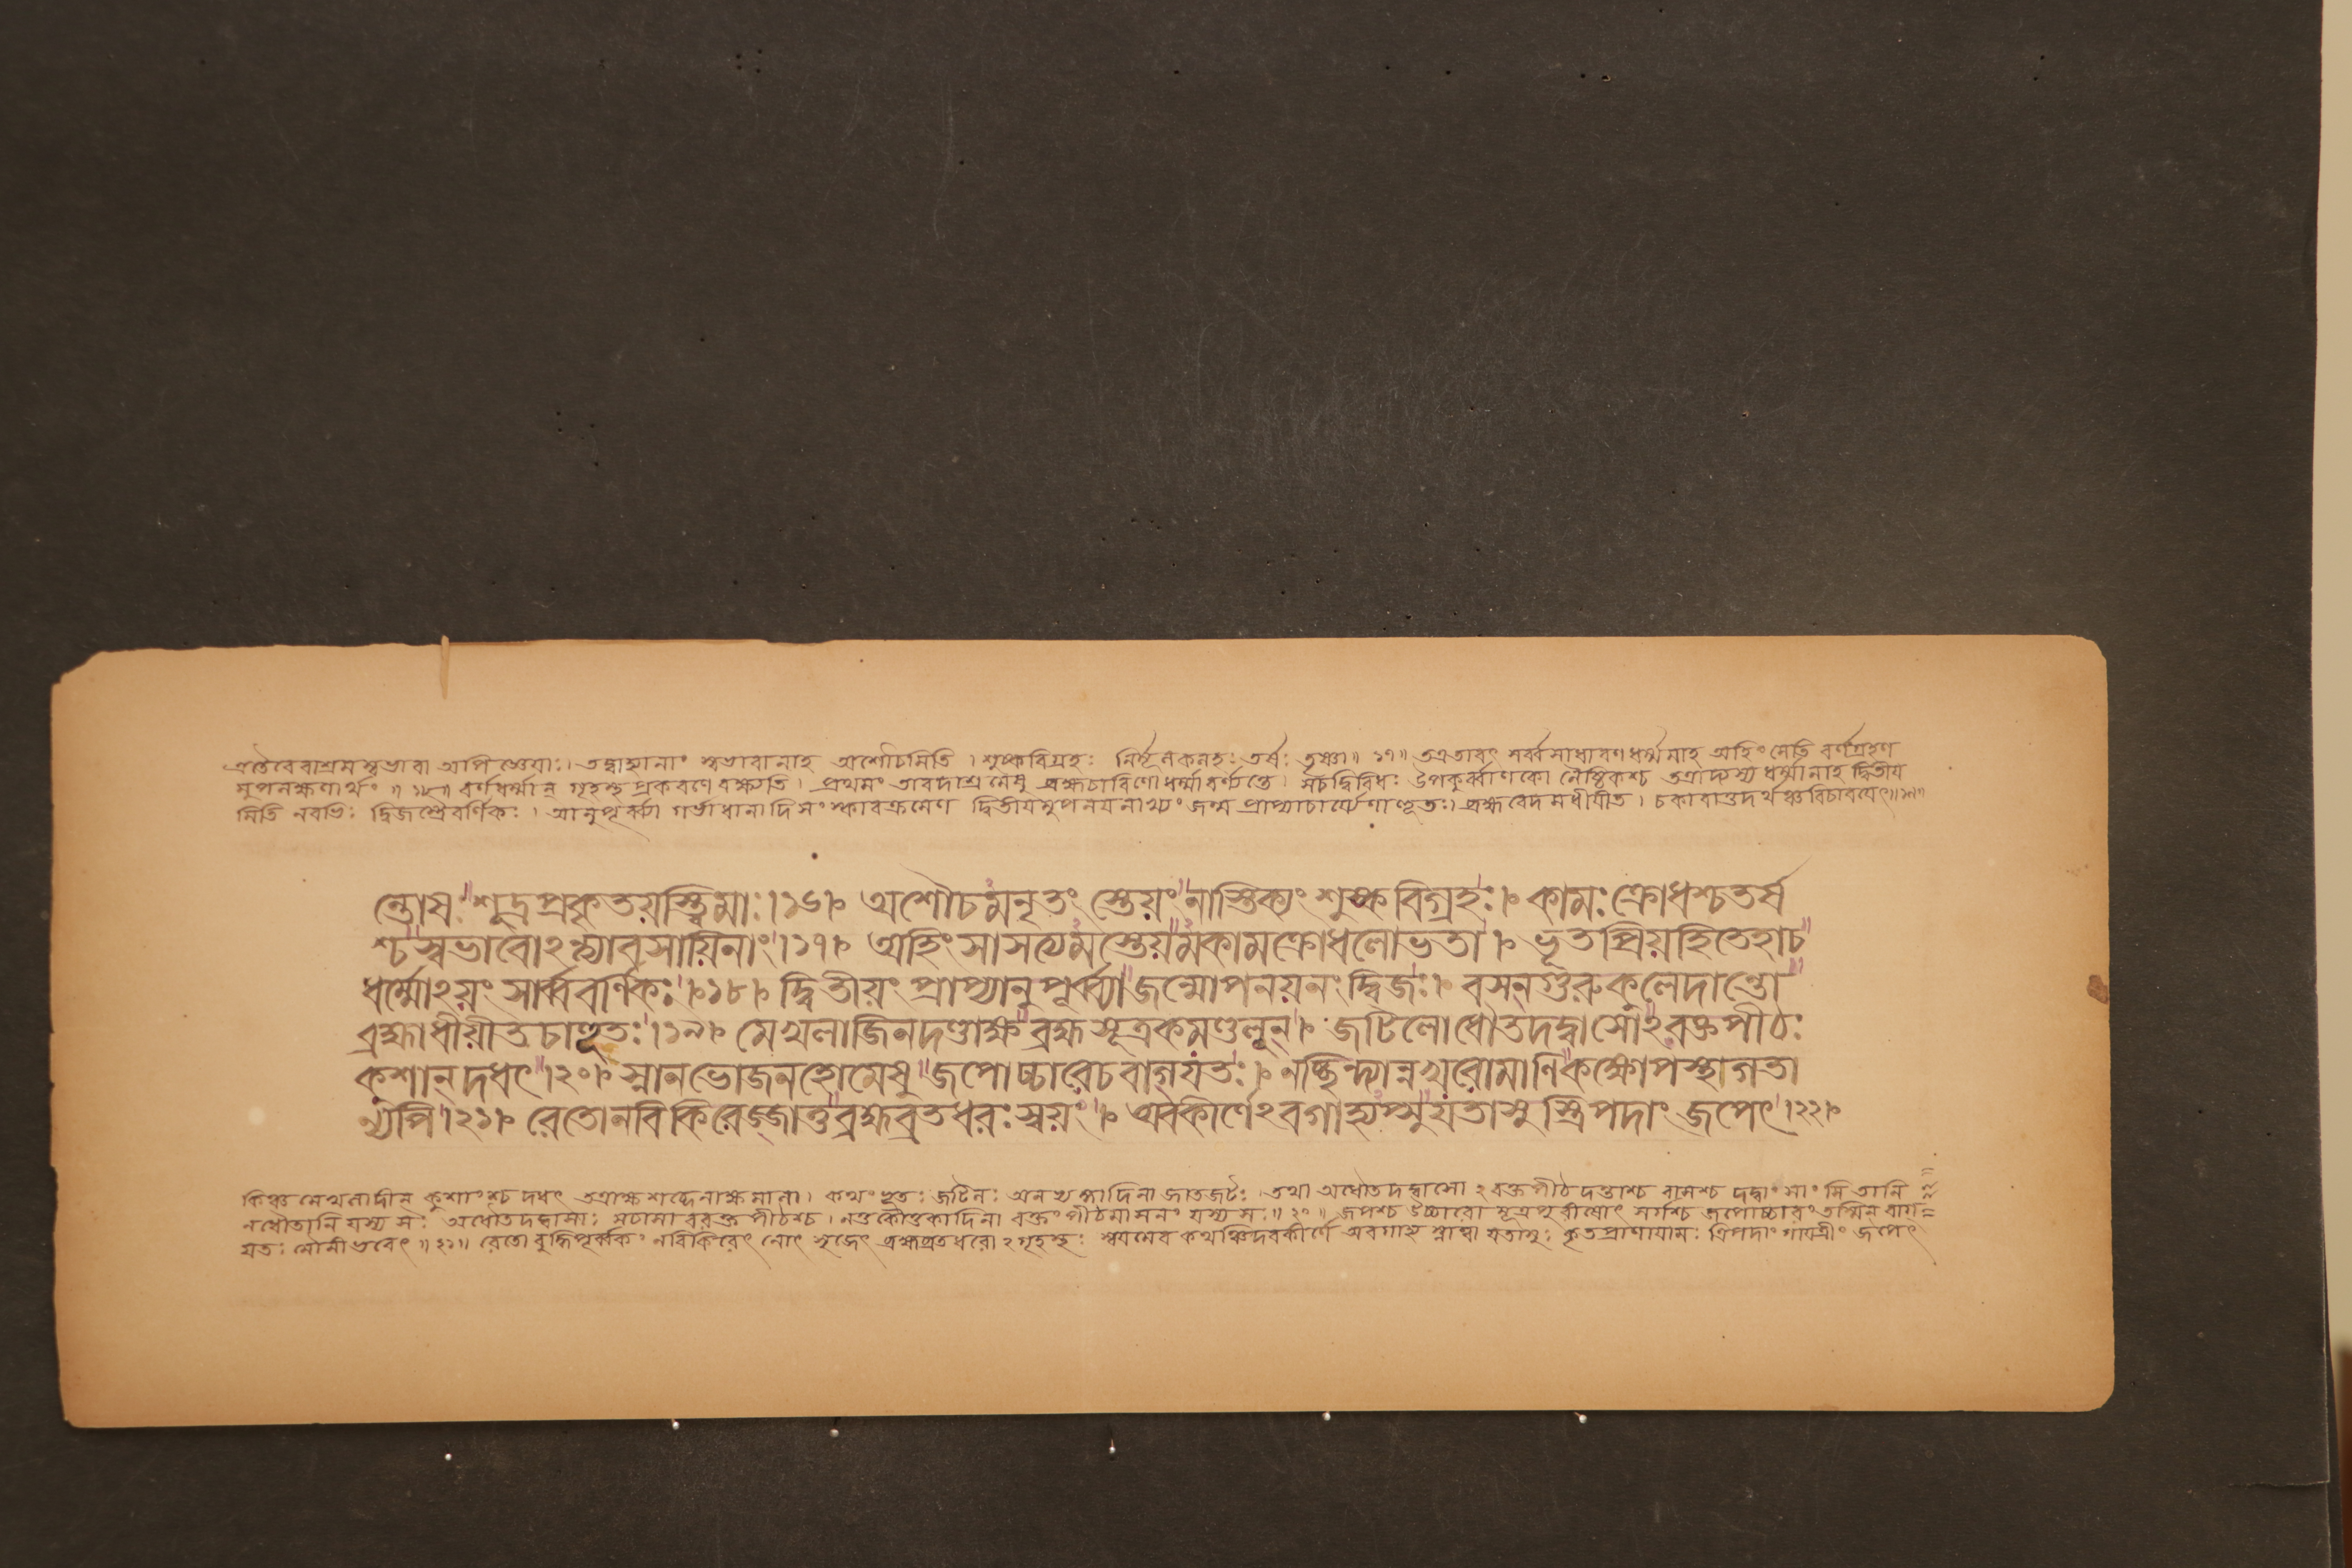 এতৈরেবাশ্রমস্বভাবা অপি জ্ঞেয়াঃ। তদ্বাহ্যানাং স্বভাবানাহ অশৌচমিতি । শুষ্কবিগ্রহঃ কলহঃ তর্ষঃ তৃষ্ণা॥ ১৭॥ তত্রতাবৎ সর্ব্বসাধারণধর্ম্মমাহ অহিংসেতি বর্ণগ্রহণ
মুপলক্ষণার্থং ॥ ১৮॥ বর্ণধর্ম্মান্ গৃহস্থ প্রকরণে বক্ষ্যতি। প্রথমং তাবদাশ্রমেষু ব্রহ্মচারিণো ধর্ম্মা বর্ণ্যন্তে। সচ দ্বিবিধঃ উপকুর্ব্বাণকো নৈষ্ঠিকশ্চ তত্রাদ্যস্য ধর্ম্মানাহ দ্বিতীয়
মিতি নবভিঃ দ্বিজস্ত্রৈবর্ণিকঃ । আনুপূর্ব্ব্যা গর্ভাধানাদি সংস্কারক্রমেণ দ্বিতীয়মুপনয়নাখ্যং জন্ম প্রাপ্যাচার্য্যেণাহূতঃ। ব্রহ্ম বেদমধীয়ীত। চকারাত্তদর্থঞ্চ বিচারয়েৎ॥১৯॥
ন্তোষঃ শূদ্রপ্রকৃতয়স্ত্বিমাঃ।১৬। অশৌচমনৃতং স্তেয়ং নাস্তিক্যং শুষ্কবিগ্রহঃ। কামঃ ক্রোধশ্চতর্ষ
শ্চ স্বভাবোঽন্ত্যাবসায়িনাং।১৭। অহিংসাসত্যমস্তেয়মকামক্রোধলোভতা। ভূতপ্রিয়হিতেহাচ
ধর্ম্মোঽয়ং সার্ব্ববর্ণিকঃ।১৮। দ্বিতীয়ং প্রাপ্যানুপূর্ব্ব্যাজন্মোপনয়নং দ্বিজঃ। বসন্গুরুকুলেদান্তো
ব্রহ্মাধীয়ীতচাহূতঃ।১৯। মেখলাজিনদণ্ডাক্ষ ব্রহ্মসূত্রকমণ্ডলূন্। জটিলোধৌতদদ্বাসোঽরক্তপীঠঃ
কুশান্ দধৎ।২০। স্নানভোজনহোমেষু জপোচ্চারেচবাগ্যতঃ। নচ্ছিন্দ্যান্নখরোমাণিকক্ষোপস্থাগতা
ন্যপি।২১। রেতোনবিকিরেজ্জাতুব্রহ্মব্রতধরঃ স্বয়ং। অবকীর্ণেঽবগাহ্যাপ্সুযতাসুস্ত্রিপদাং জপেৎ।২২।
কিঞ্চ মেখলাদীন্ কুশাংশ্চ দধৎ তত্রাক্ষশব্দেনাক্ষমালা। কথংভূতঃ জটিলঃ জাতজটঃ। তথা অধৌতদদ্বাসোঽরক্তপীঠ দন্তাশ্চ বাসশ্চ দদ্বাংসাংসি তানি
ন ধৌতানি যস্য সঃ অধৌতদদ্বাসাঃ সচাসাবরক্তপীঠশ্চ। নতু কৌতুকাদিনা রক্তং পীঠমাসনং যস্য সঃ॥ ২০॥ জপশ্চ উচ্চারো মূত্রপুরীষোৎসর্গশ্চ জপোচ্চারং তস্মিন্ বাগ্
যতঃ মৌনী ভবেৎ ॥ ২১॥ রেতো বুদ্ধিপূর্ব্বকং নবিকিরেৎ নোৎসৃজেৎ ব্রহ্মব্রতধরোঽগৃহস্থঃ স্বয়মেব কথঞ্চিদবকীর্ণে অবগাহ্য স্নাত্বা যতাসুঃ কৃতপ্রাণায়ামঃ ত্রিপদাং গায়ত্রীং জপেৎ